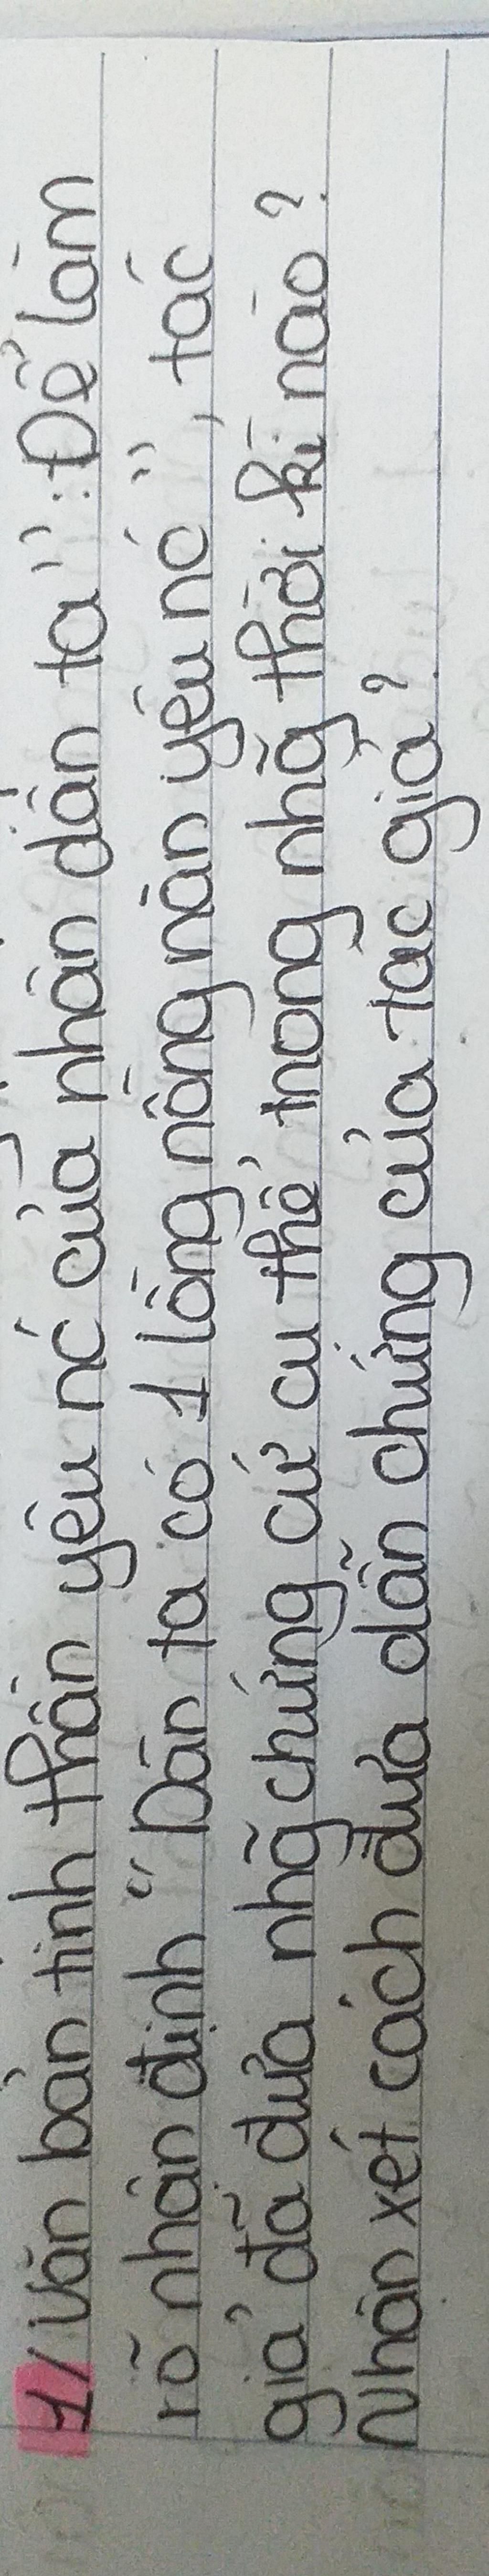 1/ Văn bản tinh thần yêu nc' của nhân dân ta": Để làm
rõ nhận định "Dân ta có 1 lòng nồng nàn yêu nc'", tác
giả đã đưa nhg̃ chứng cứ cụ thể trong nhg̃ thời kì nào?
Nhận xét cách đưa dẫn chứng của tác giả?